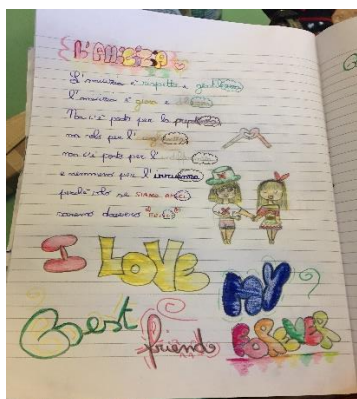 L'AMICIZIA
L'amicizia è rispetto e gentilezza
l'amicizia è gioia e
Non c'è posto per la
ma solo per l'
non c'è posto per l'
e nemmeno per l'
perché solo se SIAMO AMICI
saremo davvero FELICI
I LOVE
MY
Best
friends
FOREVER